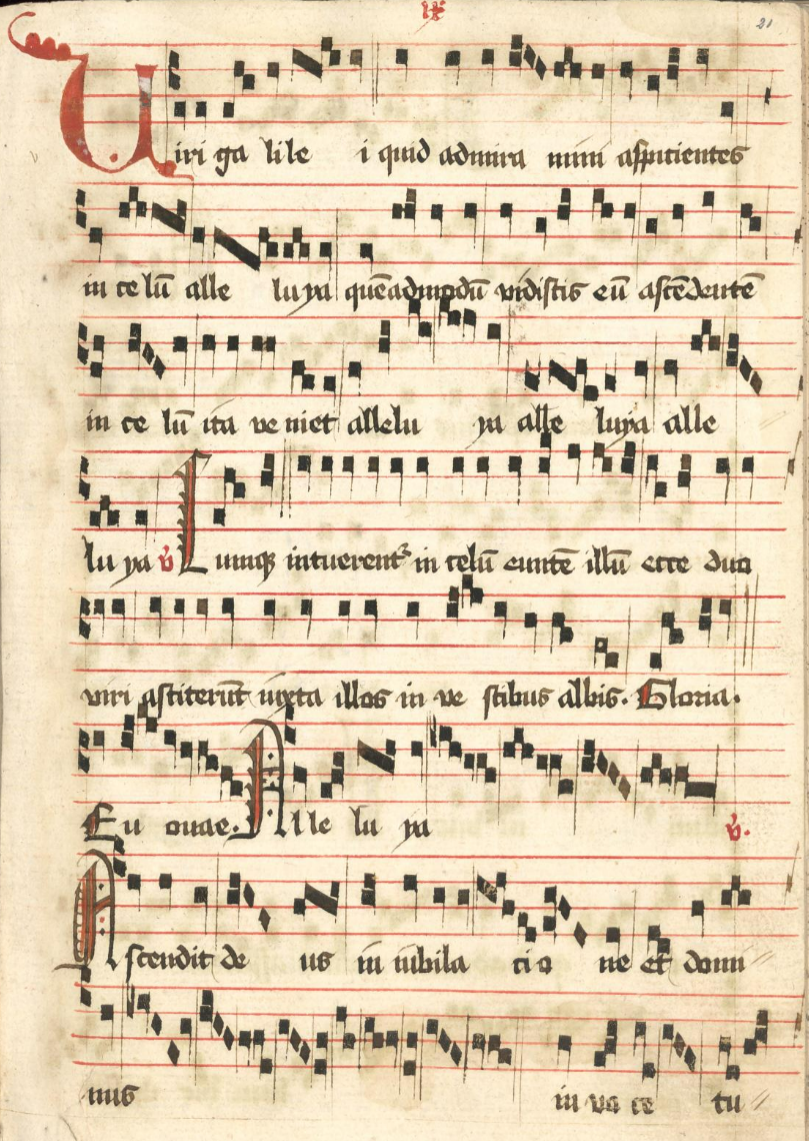 ix
21
Uiri ga lile i quid admira mini aspicientes
in celū alle luya quēadmodū vidistis eū ascēdentē
in ce lū ita ve niet allelu ya alle luya alle
lu ya v̄ Cumqꝫ intuerent᷑ in celū euntē illū ecce duo
viri astiterūt iuxta illos in ve stibus albis. Gloria.
Eu ouae. Alle lu ya v̄.
Ascendit de us in iubila cio ne et domi
nus in vo ce tu